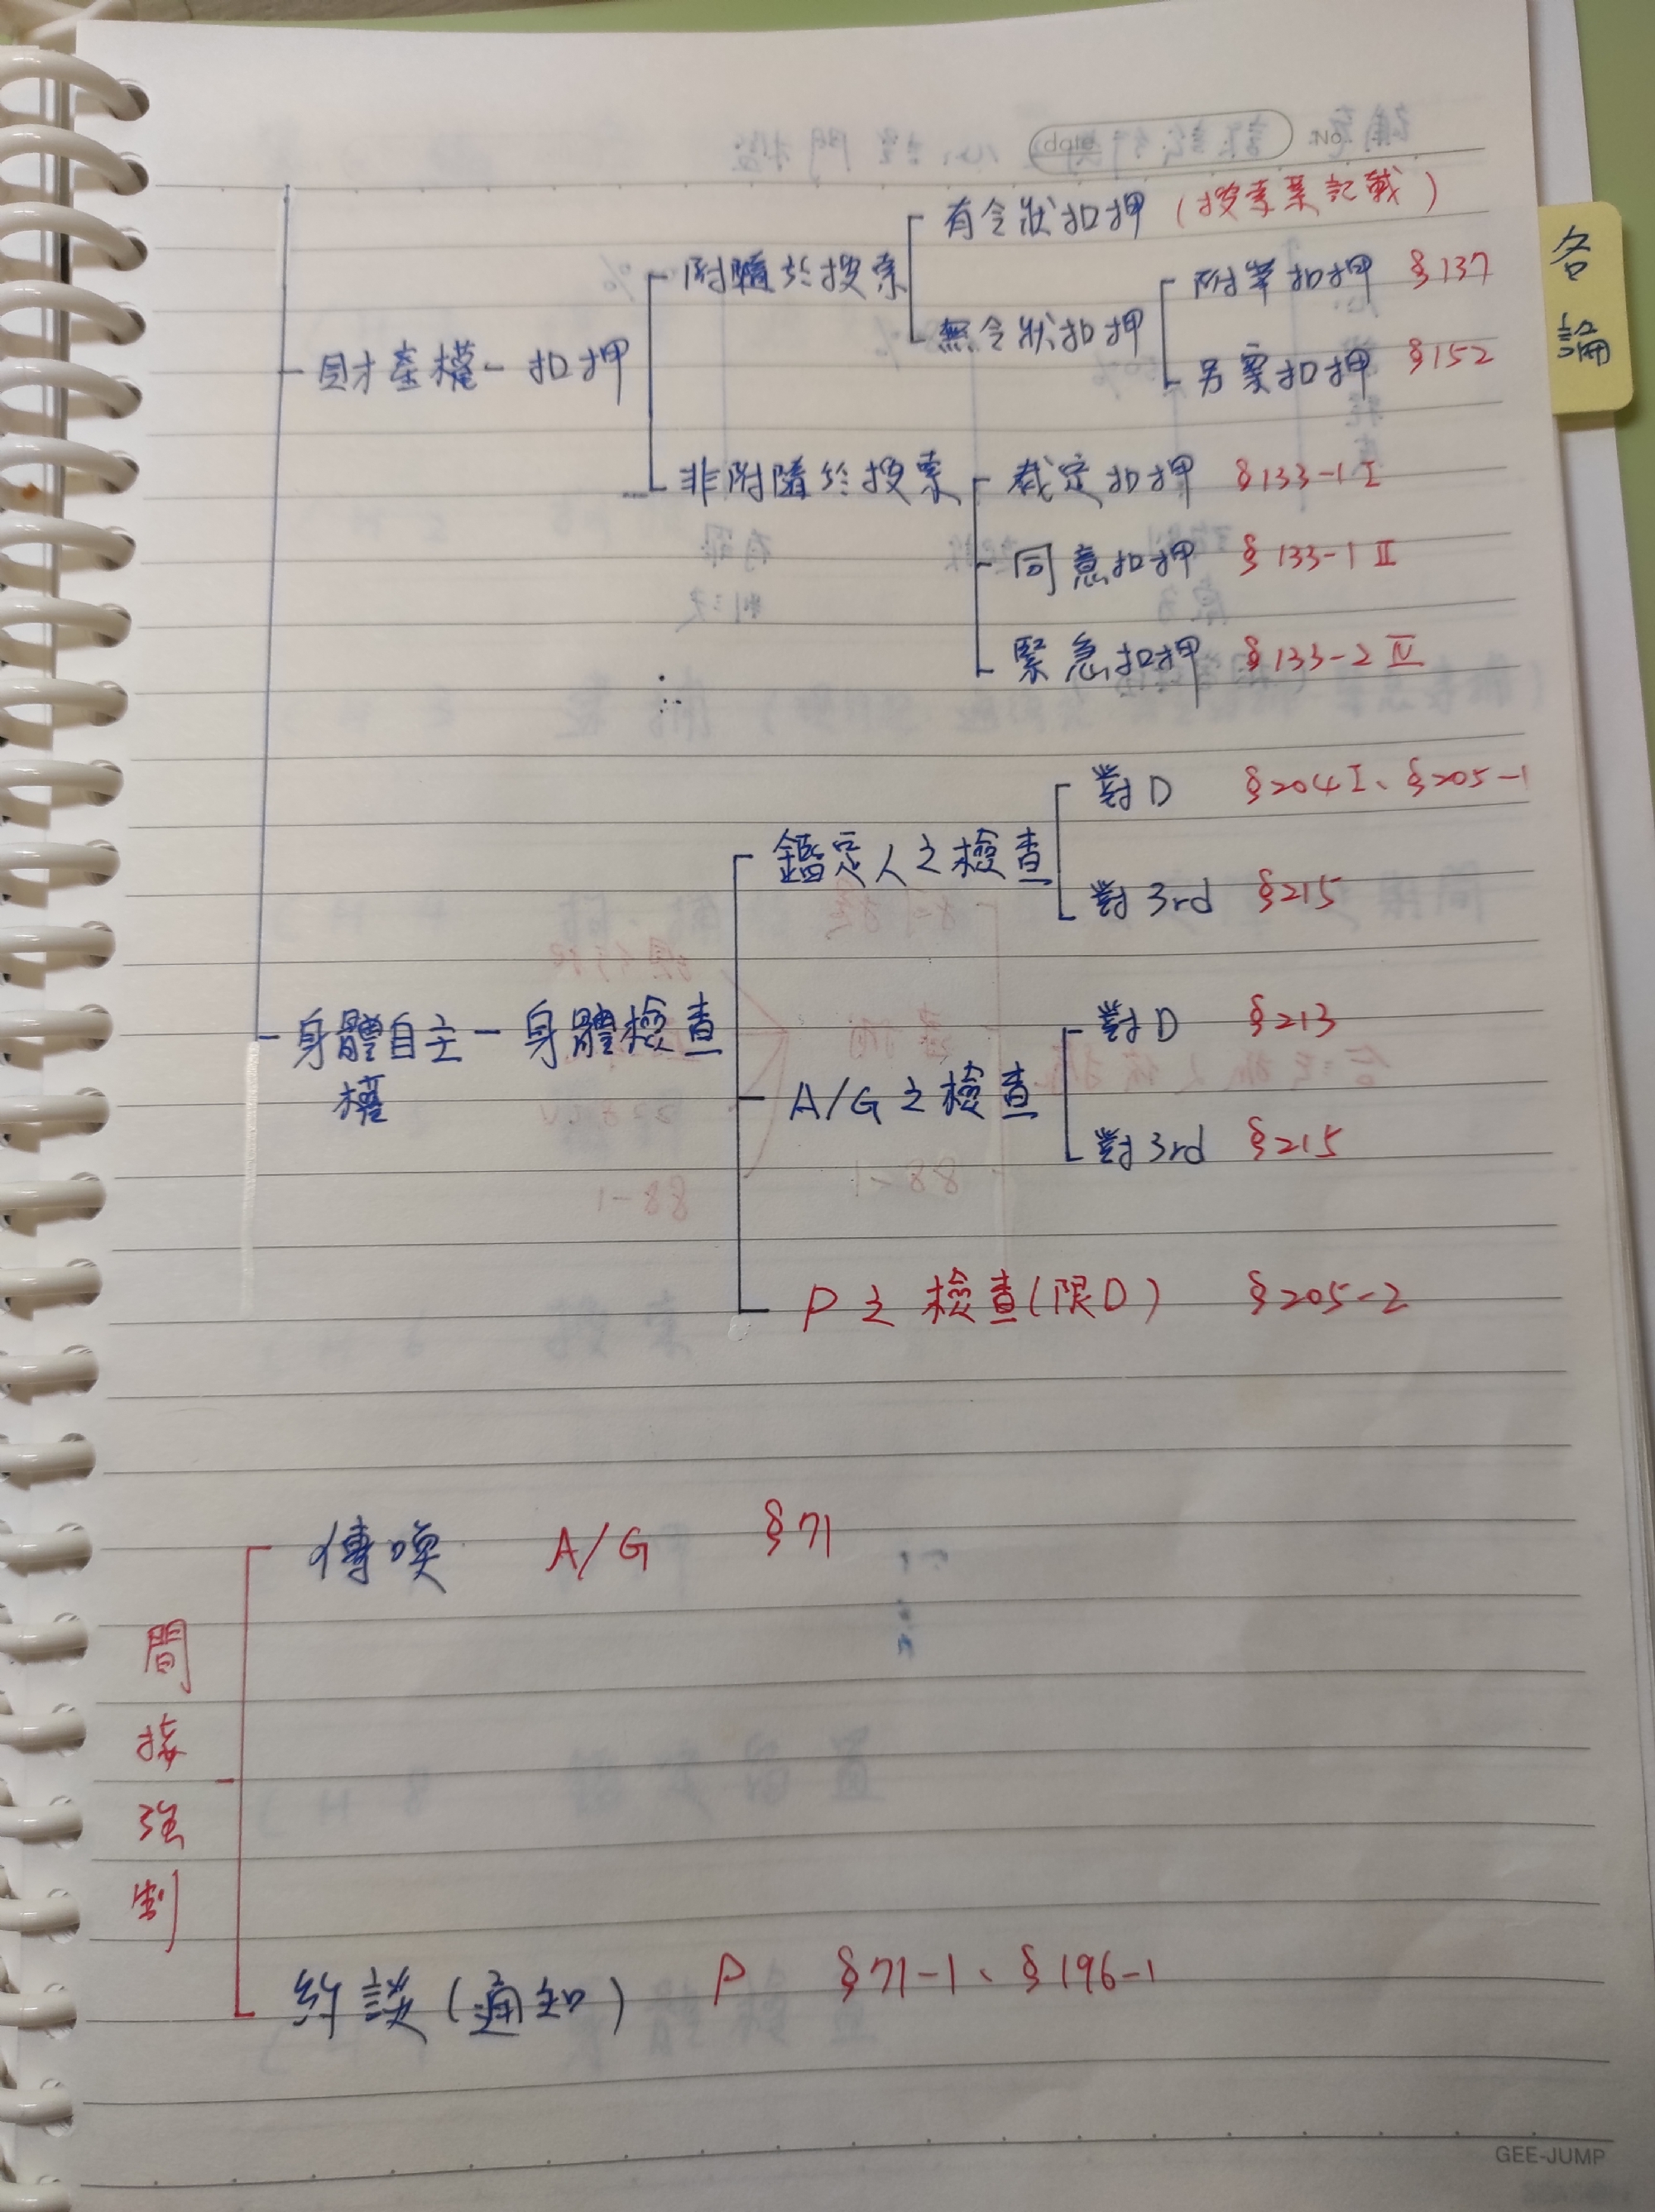 date
No.
有令狀扣押 (搜索票記載)
附隨於搜索
附帶扣押 §137
無令狀扣押
另案扣押 §152
財產權－扣押
非附隨於搜索
裁定扣押 §133-1 I
同意扣押 §133-1 II
緊急扣押 §133-2 IV
對D §204 I、§205-1
鑑定人之檢查
對3rd §215
身體自主權－身體檢查
對D §213
A/G之檢查
對3rd §215
P之檢查(限D) §205-2
間接強制
傳喚 A/G §71
約談(通知) P §71-1、§196-1
各論
GEE-JUMP